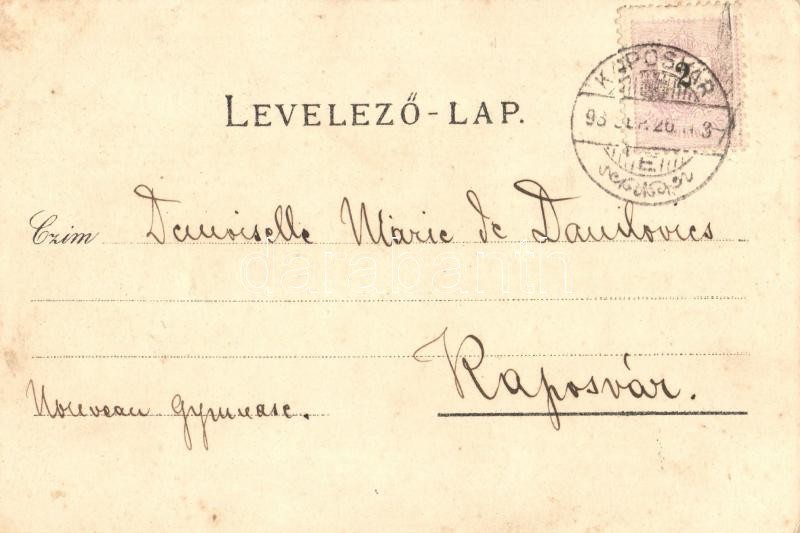 LEVELEZŐ-LAP.
2
KAPOSVÁR
98 SEP. 26. N. 3
Czim Demoiselle Marie de Danilovics
darabanth
Kaposvár.
Nouveau Gymnase.